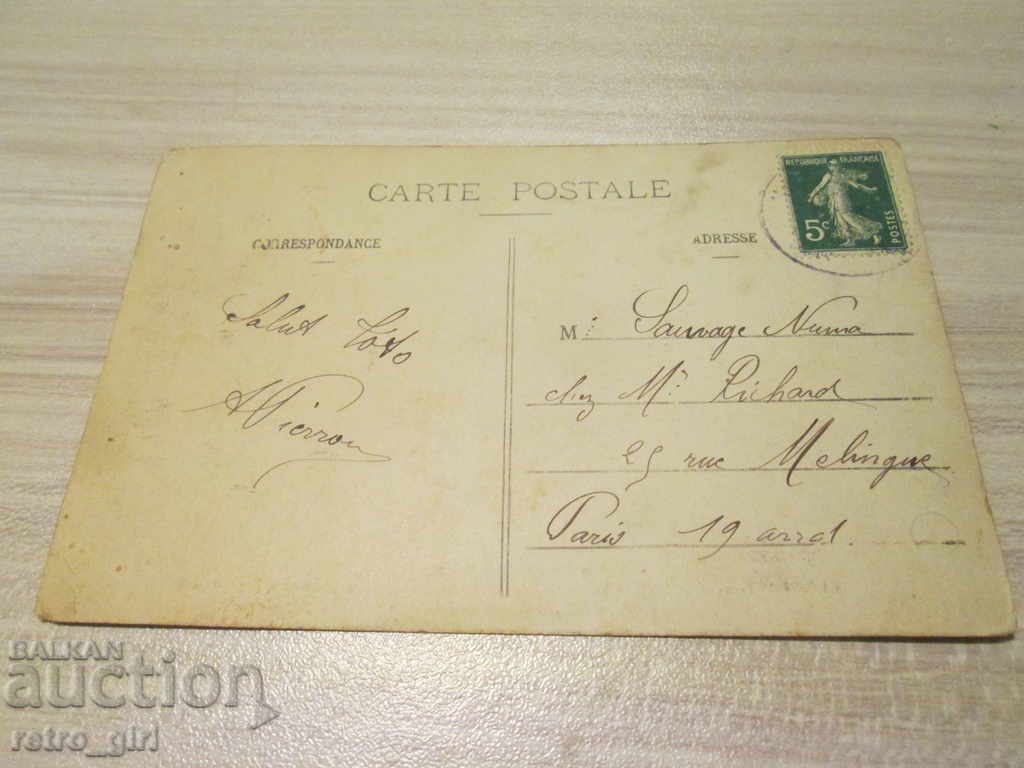 CARTE POSTALE
CORRESPONDANCE
ADRESSE
REPUBLIQUE FRANÇAISE
5c
POSTES
Salut Toto
APierron
M. Sauvage Numa
chez Mr Richard
25 rue Melingue
Paris 19 arrd.
BALKAN
auction
retro_girl